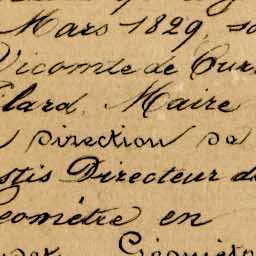 Mars 1829, so
Vicomte de Cur
llard, Maire
Direction de
stis Directeur d
Géomètre en
Géomet